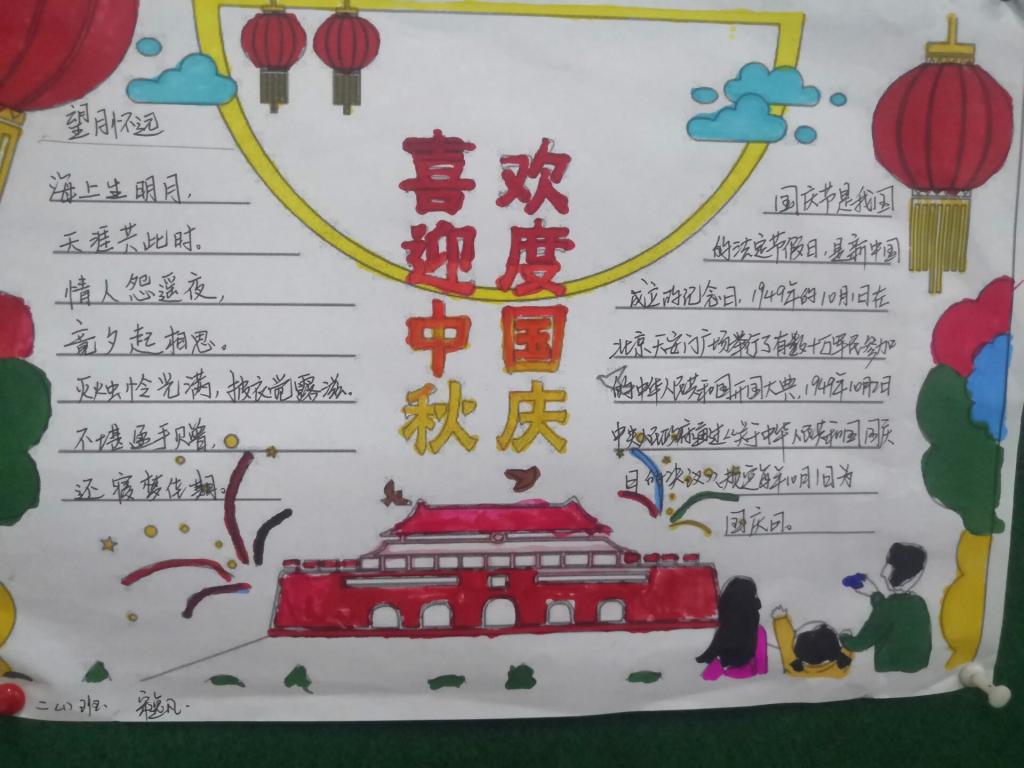 望月怀远
海上生明月,
天涯共此时。
情人怨遥夜,
竟夕起相思。
灭烛怜光满,披衣觉露滋.
不堪盈手赠,
还寝梦佳期。
喜迎中秋
欢度国庆
国庆节是我国
的法定节假日,是新中国
成立的纪念日,1949年的10月1日在
北京天安门广场举行了有数十万军民参加
的中华人民共和国开国大典,1949年10月
中央人民政府通过《关于中华人民共和国国庆
日的决议》,规定每年10月1日为
国庆日。
二(1)班